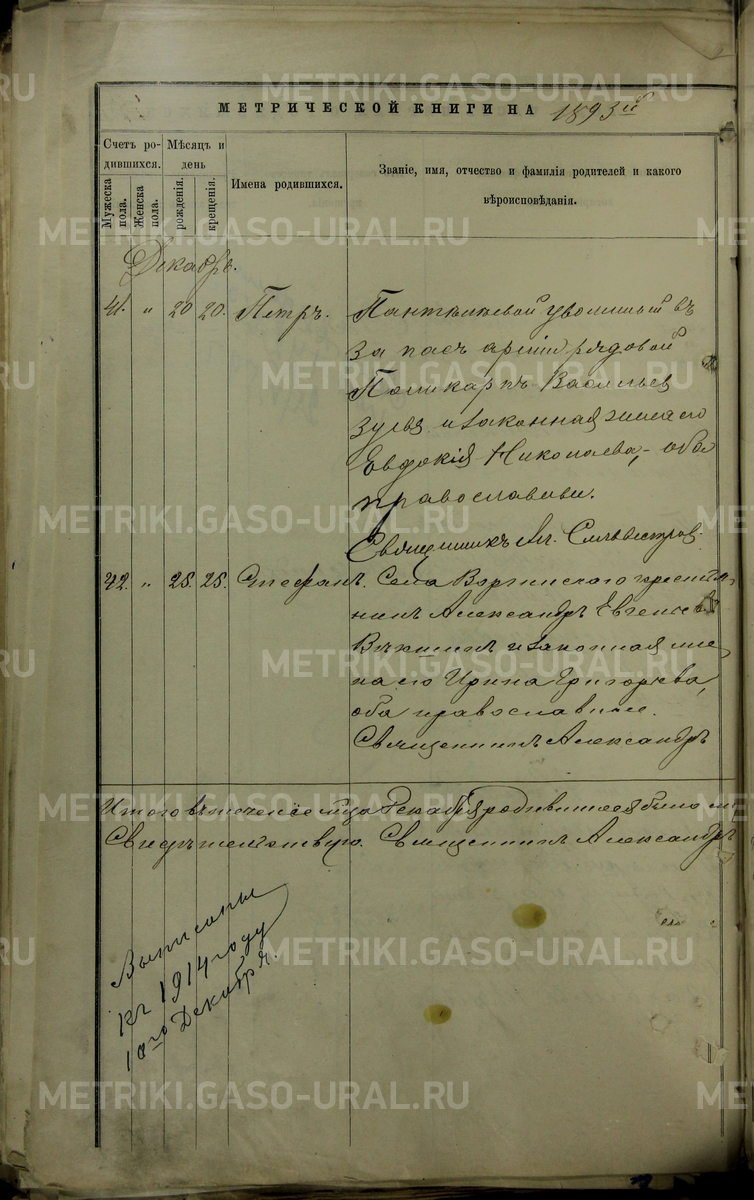 МЕТРИЧЕСКОЙ КНИГИ НА 1893й
Счетъ родившихся.
Мужеска пола.
Женска пола.
Мѣсяцъ и день
рожденія.
крещенія.
Имена родившихся.
Званіе, имя, отчество и фамилія родителей и какого
вѣроисповѣданія.
Декабрь.
41. „ 20 20. Петръ. уволиный въ
за пасъ арміи рядовой
Поликарпъ Васильев
и законная жена его
Евдокія Николаева, оба
православныи.
Священникъ Ал. Сильвестров
42. „ 25. 25. Стефанъ. Села крестья-
нинъ Александръ Евгеньевъ
и законная же-
на его Ирина Григорьева,
оба православные.
Священникъ Александръ
Итого въ теченіе м-ца Декабря родившихся было
Свидѣтельствую. Священникъ Александръ
Выписаны
къ 1914 году
1ого Декабря.
METRIKI.GASO-URAL.RU